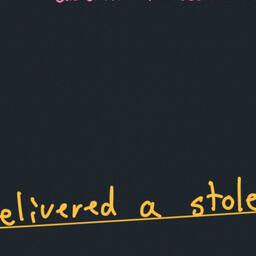 elivered a stole